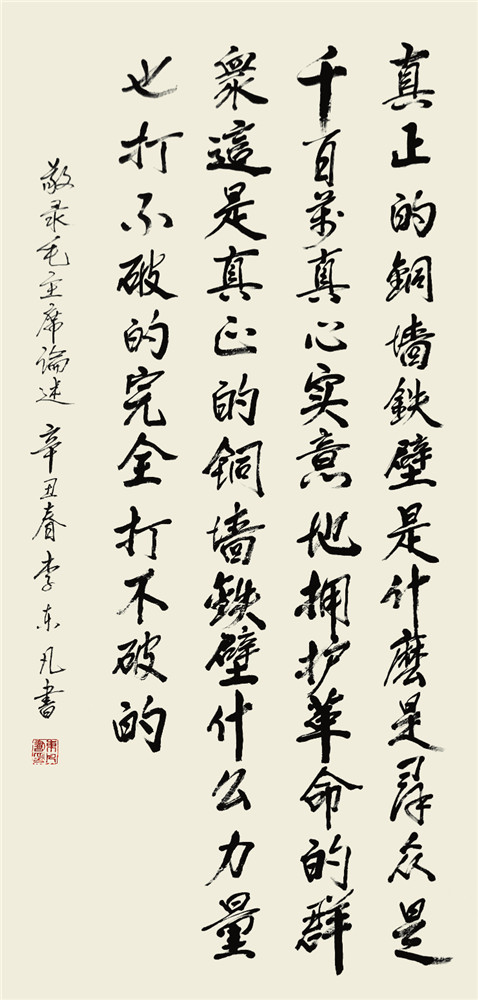 真正的銅墻鉄壁是什麽是群众是
千百萬真心实意地拥护革命的群
衆這是真正的铜墙鉄壁什么力量
也打不破的完全打不破的
敬录毛主席论述 辛丑春 李东凡書